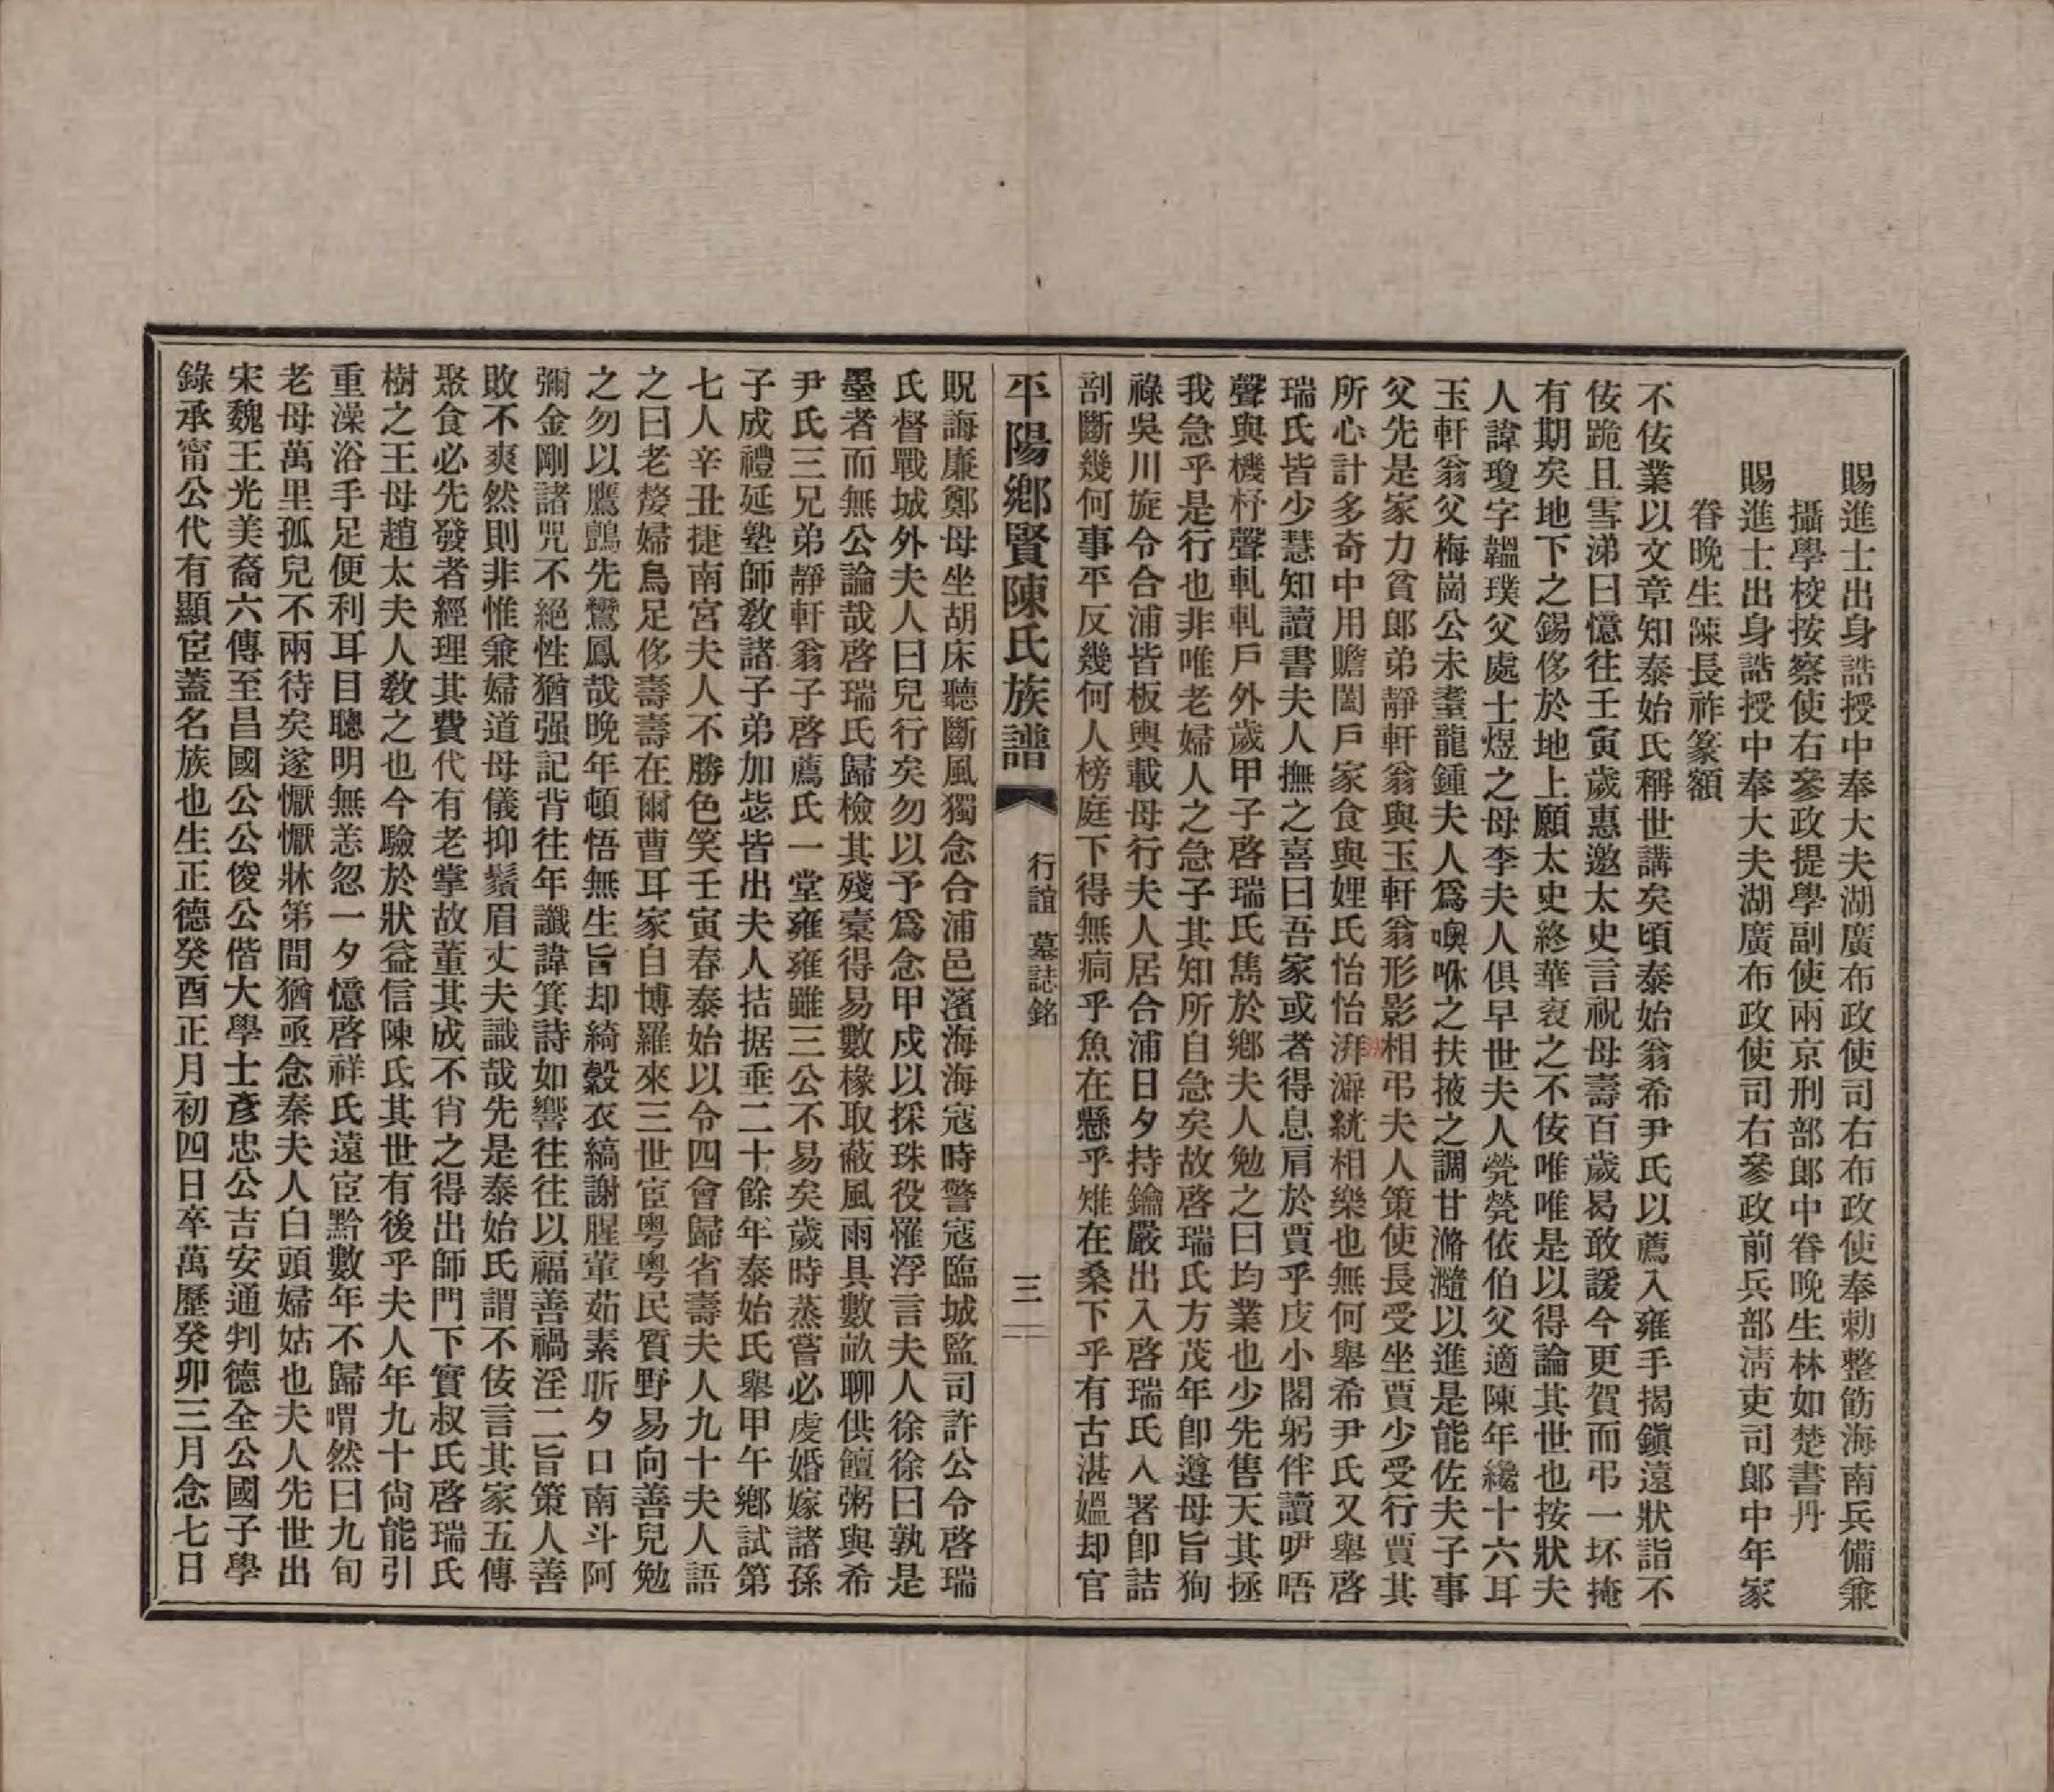 賜進士出身誥授中奉大夫湖廣布政使司右布政使奉勅整飭海南兵備兼
攝學校按察使右參政提學副使兩京刑部郎中眷晚生林如楚書丹
賜進士出身誥授中奉大夫湖廣布政使司右參政前兵部淸吏司郎中年家
眷晚生陳長祚篆額
不佞業以文章知泰始氏稱世講矣頃泰始翁希尹氏以薦入雍手揭鎭遠狀詣不
佞跪且雪涕曰憶往壬寅歲惠邀太史言祝母壽百歲曷敢諼今更賀而弔一坏掩
有期矣地下之錫侈於地上願太史終華袞之不佞唯唯是以得論其世也按狀夫
人諱瓊字韞璞父處士煜之母李夫人俱早世夫人煢煢依伯父適陳年纔十六耳
玉軒翁父梅崗公未耋龍鍾夫人爲噢咻之扶掖之調甘滫瀡以進是能佐夫子事
父先是家力貧郎弟靜軒翁與玉軒翁形影相弔夫人策使長受坐賈少受行賈其
所心計多奇中用贍闔戶家食與娌氏怡怡湃澼絖相樂也無何舉希尹氏又舉啓
瑞氏皆少慧知讀書夫人撫之喜曰吾家或者得息肩於賈乎庋小閣躬伴讀咿唔
聲與機杼聲軋軋戶外歲甲子啓瑞氏雋於鄕夫人勉之曰均業也少先售天其拯
我急乎是行也非唯老婦人之急子其知所自急矣故啓瑞氏方茂年卽遵母旨狥
祿吳川旋令合浦皆板輿載母行夫人居合浦日夕持鑰嚴出入啓瑞氏入署卽詰
剖斷幾何事平反幾何人榜庭下得無痌乎魚在懸乎雉在桑下乎有古湛媼却官
平陽鄕賢陳氏族譜 行誼 墓誌銘 三
貺誨廉鄭母坐胡床聽斷風獨念合浦邑濱海海寇時警寇臨城監司許公令啓瑞
氏督戰城外夫人曰兒行矣勿以予爲念甲戍以採珠役罹浮言夫人徐徐曰孰是
墨者而無公論哉啓瑞氏歸檢其殘橐得易數椽取蔽風雨具數畝聊供饘粥與希
尹氏三兄弟靜軒翁子啓薦氏一堂雍雍雖三公不易矣歲時蒸嘗必虔婚嫁諸孫
子成禮延塾師敎諸子弟加毖皆出夫人拮据垂二十餘年泰始氏舉甲午鄕試第
七人辛丑捷南宮夫人不勝色笑壬寅春泰始以令四會歸省壽夫人九十夫人語
之曰老嫠婦烏足侈壽壽在爾曹耳家自博羅來三世宦粵粵民質野易向善兒勉
之勿以鷹鸇先鸞鳳哉晚年頓悟無生旨却綺縠衣縞謝腥葷茹素昕夕口南斗阿
彌金剛諸咒不絕性猶强記背往年讖諱箕詩如響往往以福善禍淫二旨策人善
敗不爽然則非惟兼婦道母儀抑鬚眉丈夫識哉先是泰始氏謂不佞言其家五傳
聚食必先發者經理其費代有老掌故董其成不肖之得出師門下實叔氏啓瑞氏
樹之王母趙太夫人敎之也今驗於狀益信陳氏其世有後乎夫人年九十尙能引
重澡浴手足便利耳目聰明無恙忽一夕憶啓祥氏遠宦黔數年不歸喟然曰九旬
老母萬里孤兒不兩待矣遂懨懨牀第間猶亟念秦夫人白頭婦姑也夫人先世出
宋魏王光美裔六傳至昌國公公俊公偕大學士彥忠公吉安通判德全公國子學
錄承甯公代有顯宦蓋名族也生正德癸酉正月初四日卒萬歷癸卯三月念七日